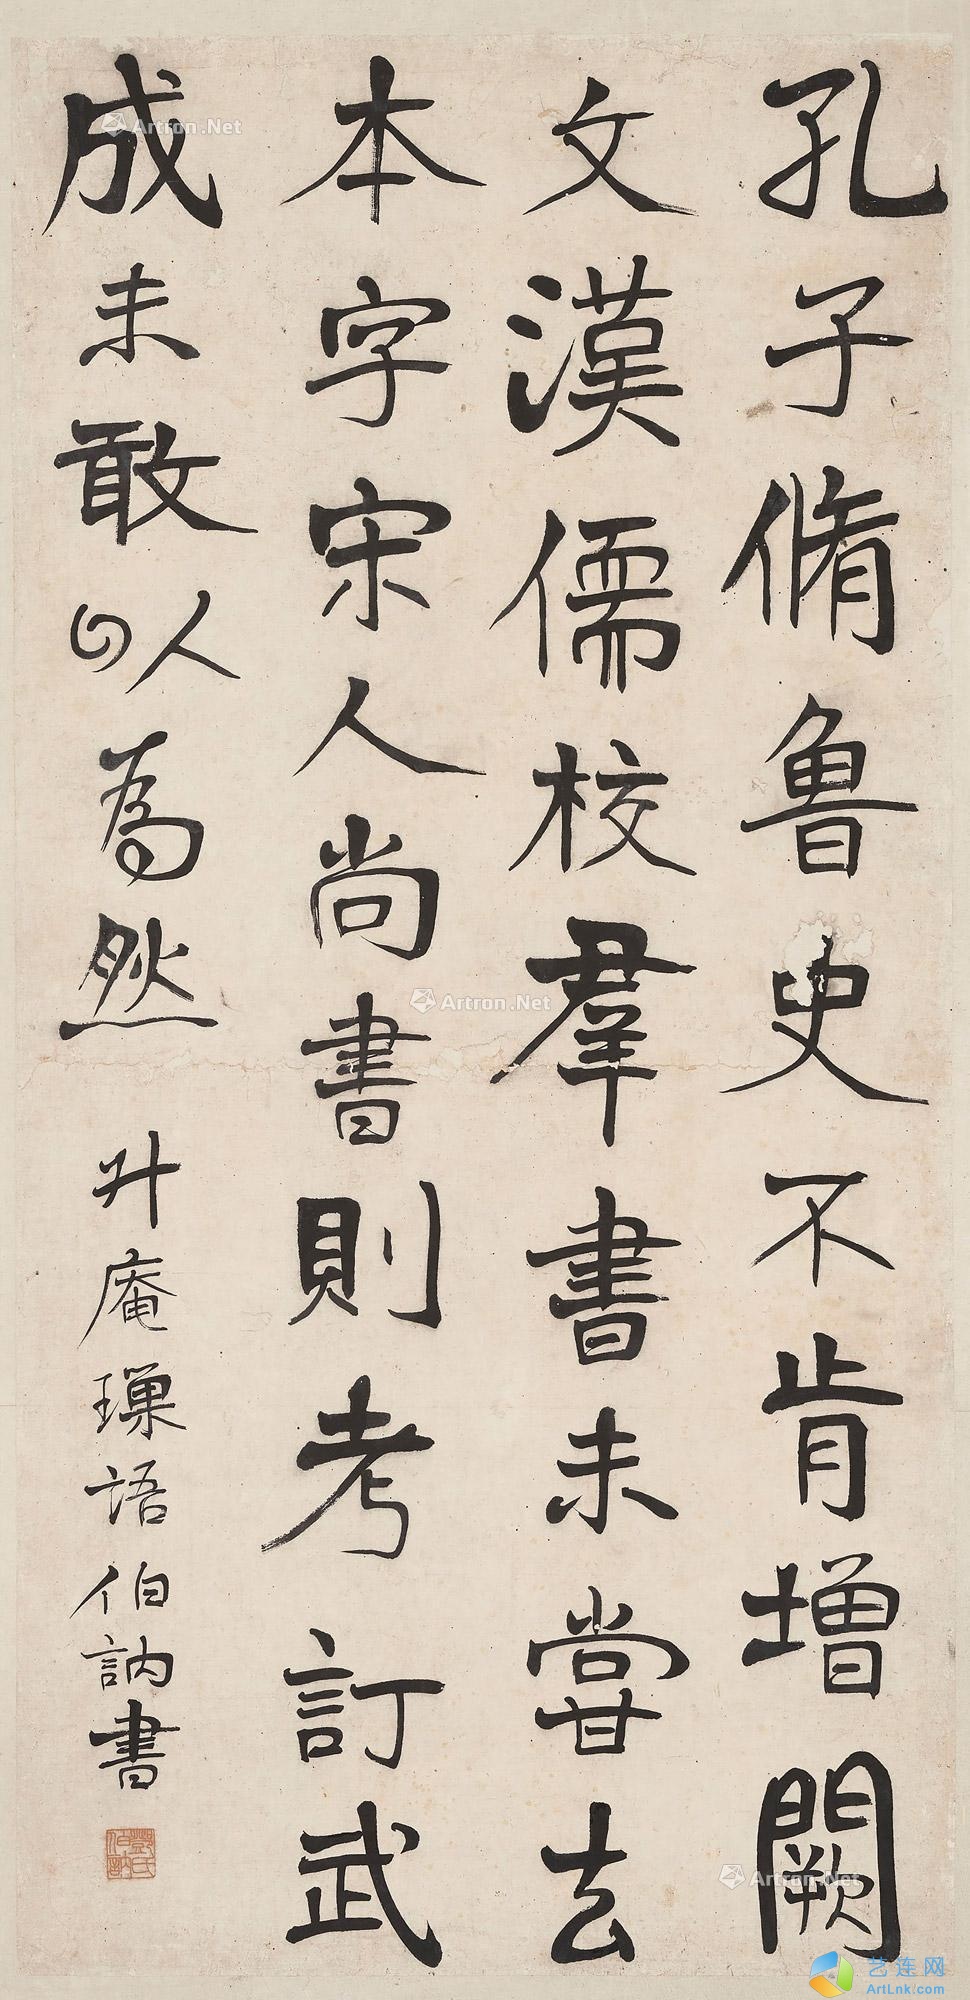 孔子脩魯史不肯增闕
文漢儒校羣書未甞去
本字宋人尚書則考訂武
成未敢以為然
升庵璅語伯訥書
鄧氏伯訥
Artron.Net
Artron.Net
Artron.Net
艺连网
ArtLnk.com